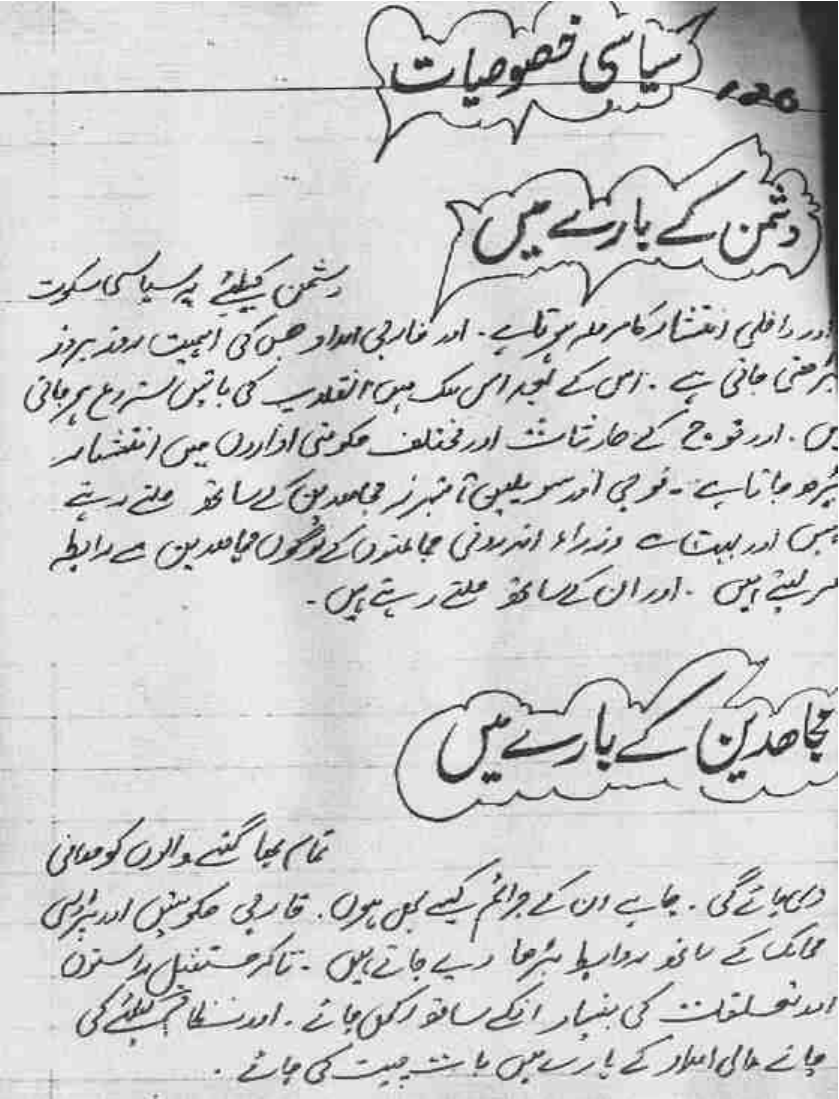 سیاسی خصوصیات
دشمن کے بارے میں
دشمن کیلئے یہ سیاسی سکوت
اور داخلی انتشار کا مرحلہ ہوتا ہے۔ اور خارجی امداد جس کی اہمیت روز بروز
بڑھتی جاتی ہے۔ اسی کے بعد اس ملک میں انقلاب کی باتیں شروع ہو جاتی
ہیں۔ اور فوج کے اور مختلف حکومتی اداروں میں انتشار
بڑھ جاتا ہے۔ فوجی اور سویلین آفیسرز مجاھدین کے ساتھ ملتے رہتے
ہیں اور بہت سے وزراء اندرونی کے لوگوں مجاھدین سے رابطہ
کر لیتے ہیں۔ اور ان کے ساتھ ملتے رہتے ہیں۔
مجاھدین کے بارے میں
تمام بھاگنے والوں کو معافی
دی جائے گی۔ چاہے ان کے جرائم کیسے بھی ہوں۔ خارجی حکومتیں اور پڑوسی
ممالک کے ساتھ روابط بڑھا دیے جاتے ہیں۔ تاکہ مستقبل
اور تعلقات کی بنیاد انکے ساتھ رکھی جائے۔ اور کیلئے کی
جانے والی امداد کے بارے میں بات چیت کی جائے۔